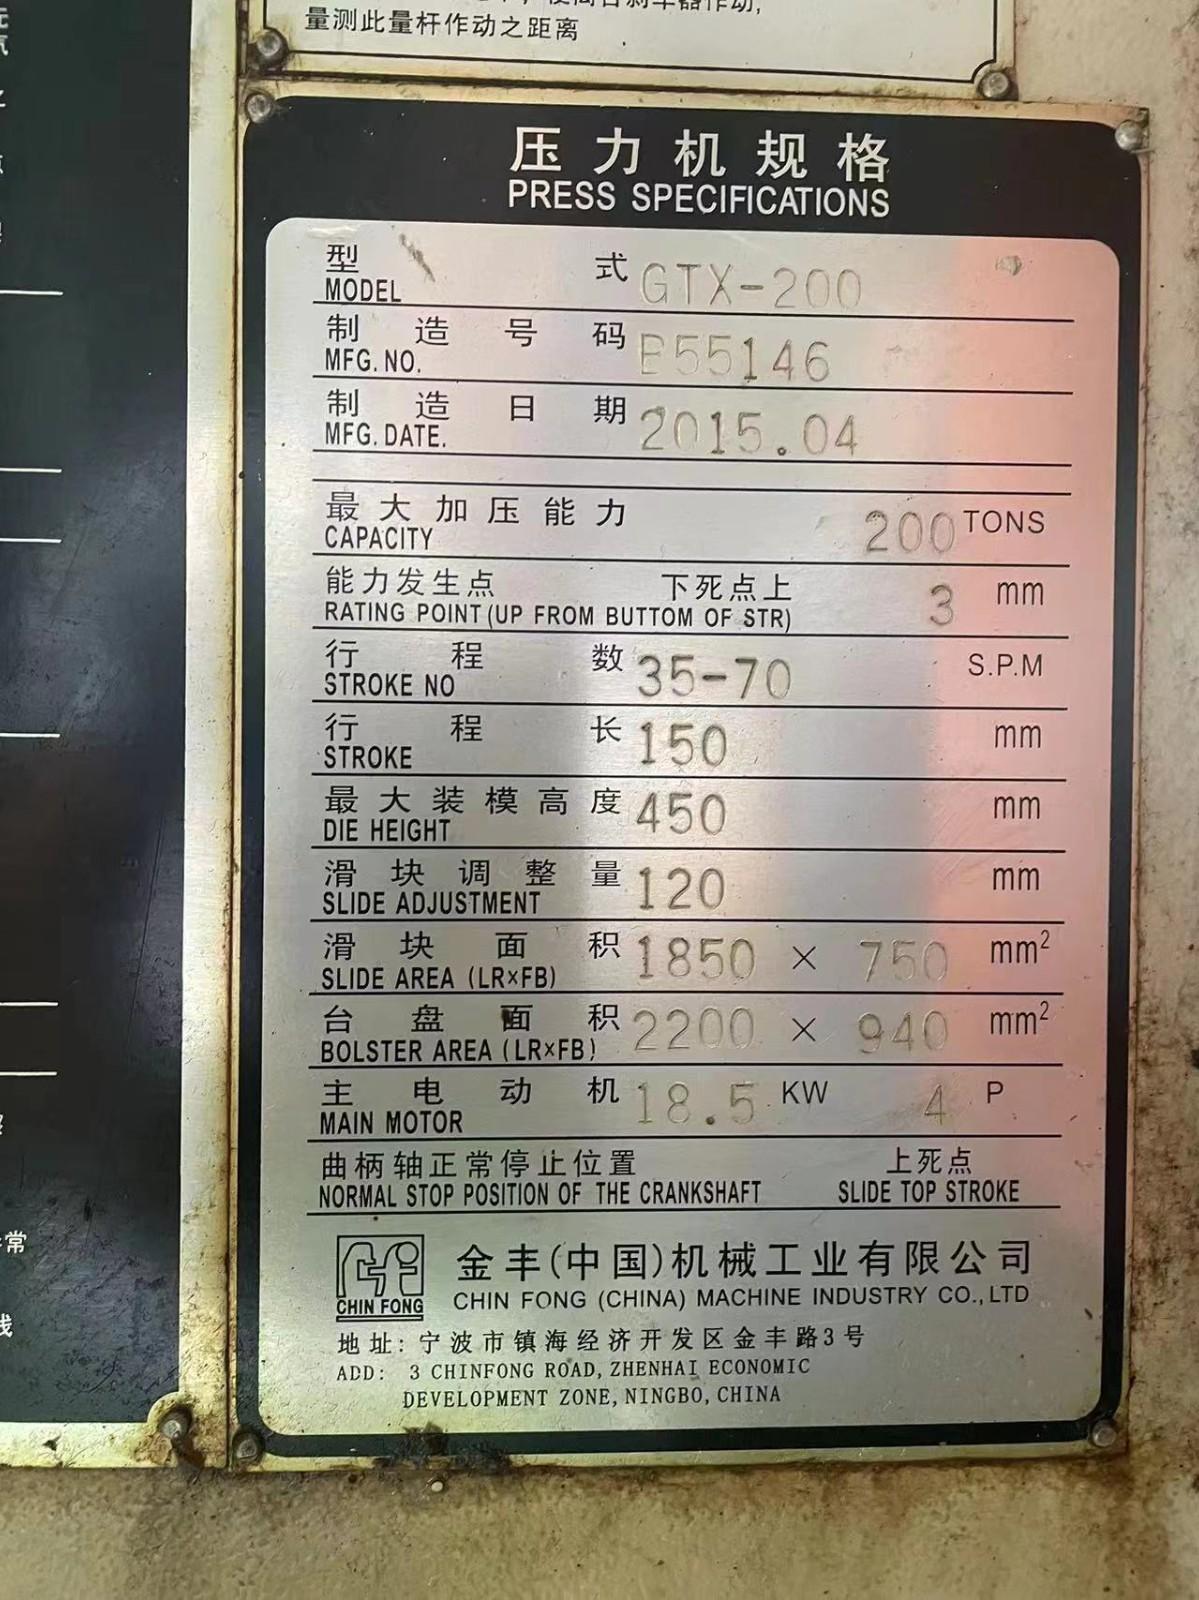 量测此量杆作动之距离
压力机规格
PRESS SPECIFICATIONS
型式 GTX-200
MODEL
制造号码 B55146
MFG.NO.
制造日期 2015.04
MFG.DATE.
最大加压能力 200 TONS
CAPACITY
能力发生点 下死点上 3 mm
RATING POINT(UP FROM BUTTOM OF STR)
行程数 35-70 S.P.M
STROKE NO
行程长 150 mm
STROKE
最大装模高度 450 mm
DIE HEIGHT
滑块调整量 120 mm
SLIDE ADJUSTMENT
滑块面积 1850 × 750 mm²
SLIDE AREA (LR×FB)
台盘面积 2200 × 940 mm²
BOLSTER AREA (LR×FB)
主电动机 18.5 KW 4 P
MAIN MOTOR
曲柄轴正常停止位置 上死点
NORMAL STOP POSITION OF THE CRANKSHAFT SLIDE TOP STROKE
CHIN FONG
金丰(中国)机械工业有限公司
CHIN FONG (CHINA) MACHINE INDUSTRY CO.,LTD
地址: 宁波市镇海经济开发区金丰路3号
ADD: 3 CHINFONG ROAD, ZHENHAI ECONOMIC
DEVELOPMENT ZONE, NINGBO, CHINA
常
线